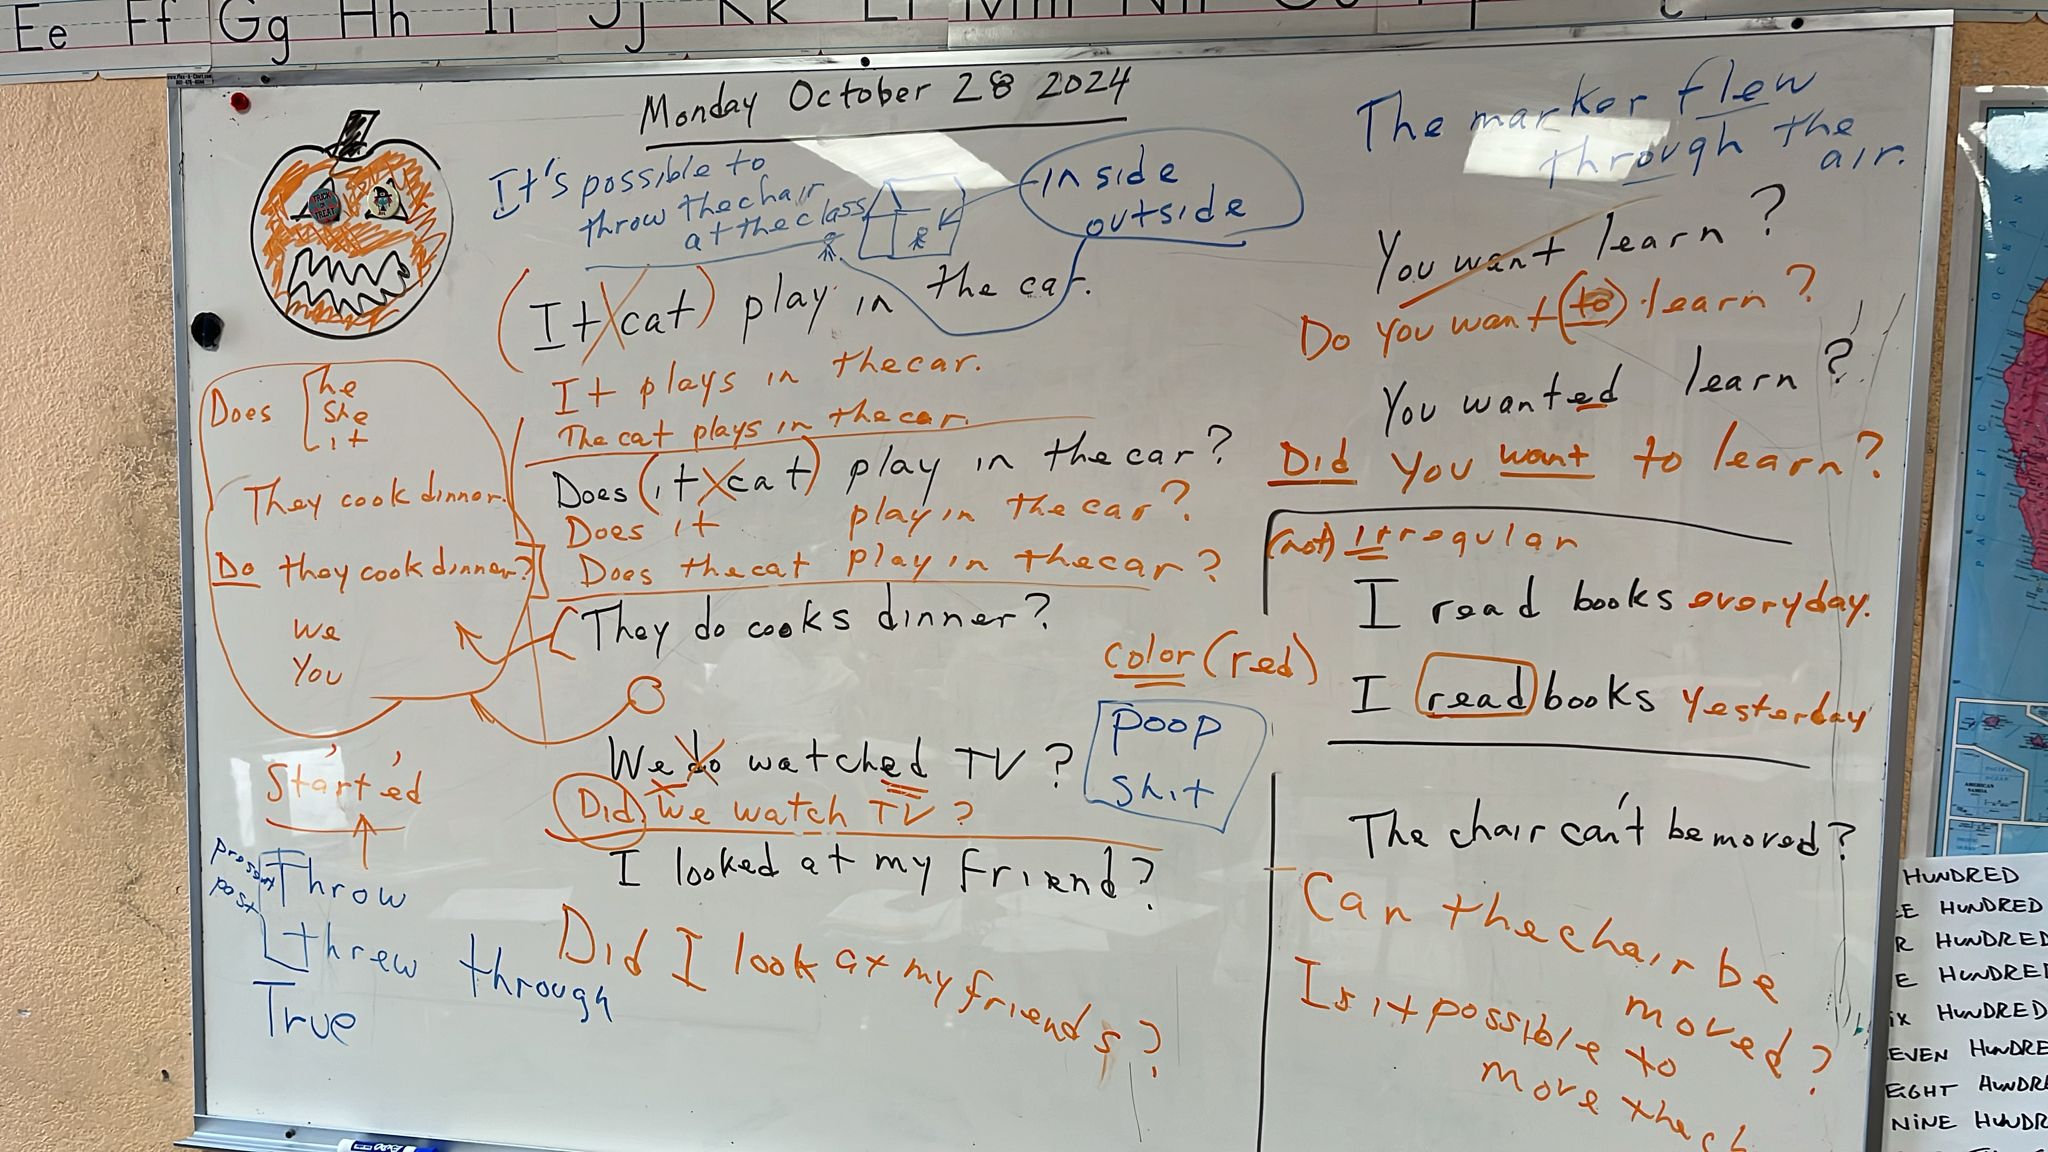 Ee Ff Gg Hh Ii Jj Kk
Monday October 28 2024
TRICK OR TREAT
It's possible to
throw the chair
at the class
inside
outside
The marker flew
through the
air.
(It cat) play in the car.
It plays in the car.
The cat plays in the car.
Does (it cat) play in the car?
Does it play in the car?
Does the cat play in the car?
They do cooks dinner?
Does he
She
it
They cook dinner.
Do they cook dinner?
We
You
We do watched TV?
Did we watch TV?
I looked at my friend?
Did I look at my friends?
Started
present Throw
past threw through
True
color (red)
poop
shit
You want learn?
Do you want (to) learn?
You wanted learn?
Did you want to learn?
(not) irregular
I read books everyday.
I read books yesterday
The chair can't be moved?
Can the chair be
moved?
Is it possible to
move the ch
PACIFIC O
AMERICAN
SAMOA
HUNDRED
HUNDRED
HUNDRED
HUNDRED
HUNDRED
EVEN HUNDRE
EIGHT HUNDR
NINE HUNDR